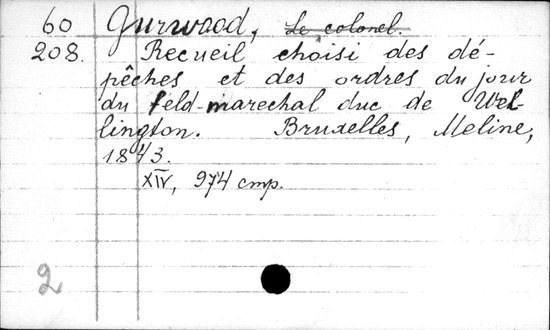 60 Gurwood, Le colonel.
208. Recueil choisi des dé-
pêches et des ordres du jour
du feld-marechal duc de Wel-
lington. Bruxelles, Meline,
1843.
XIV, 974 стр.
2